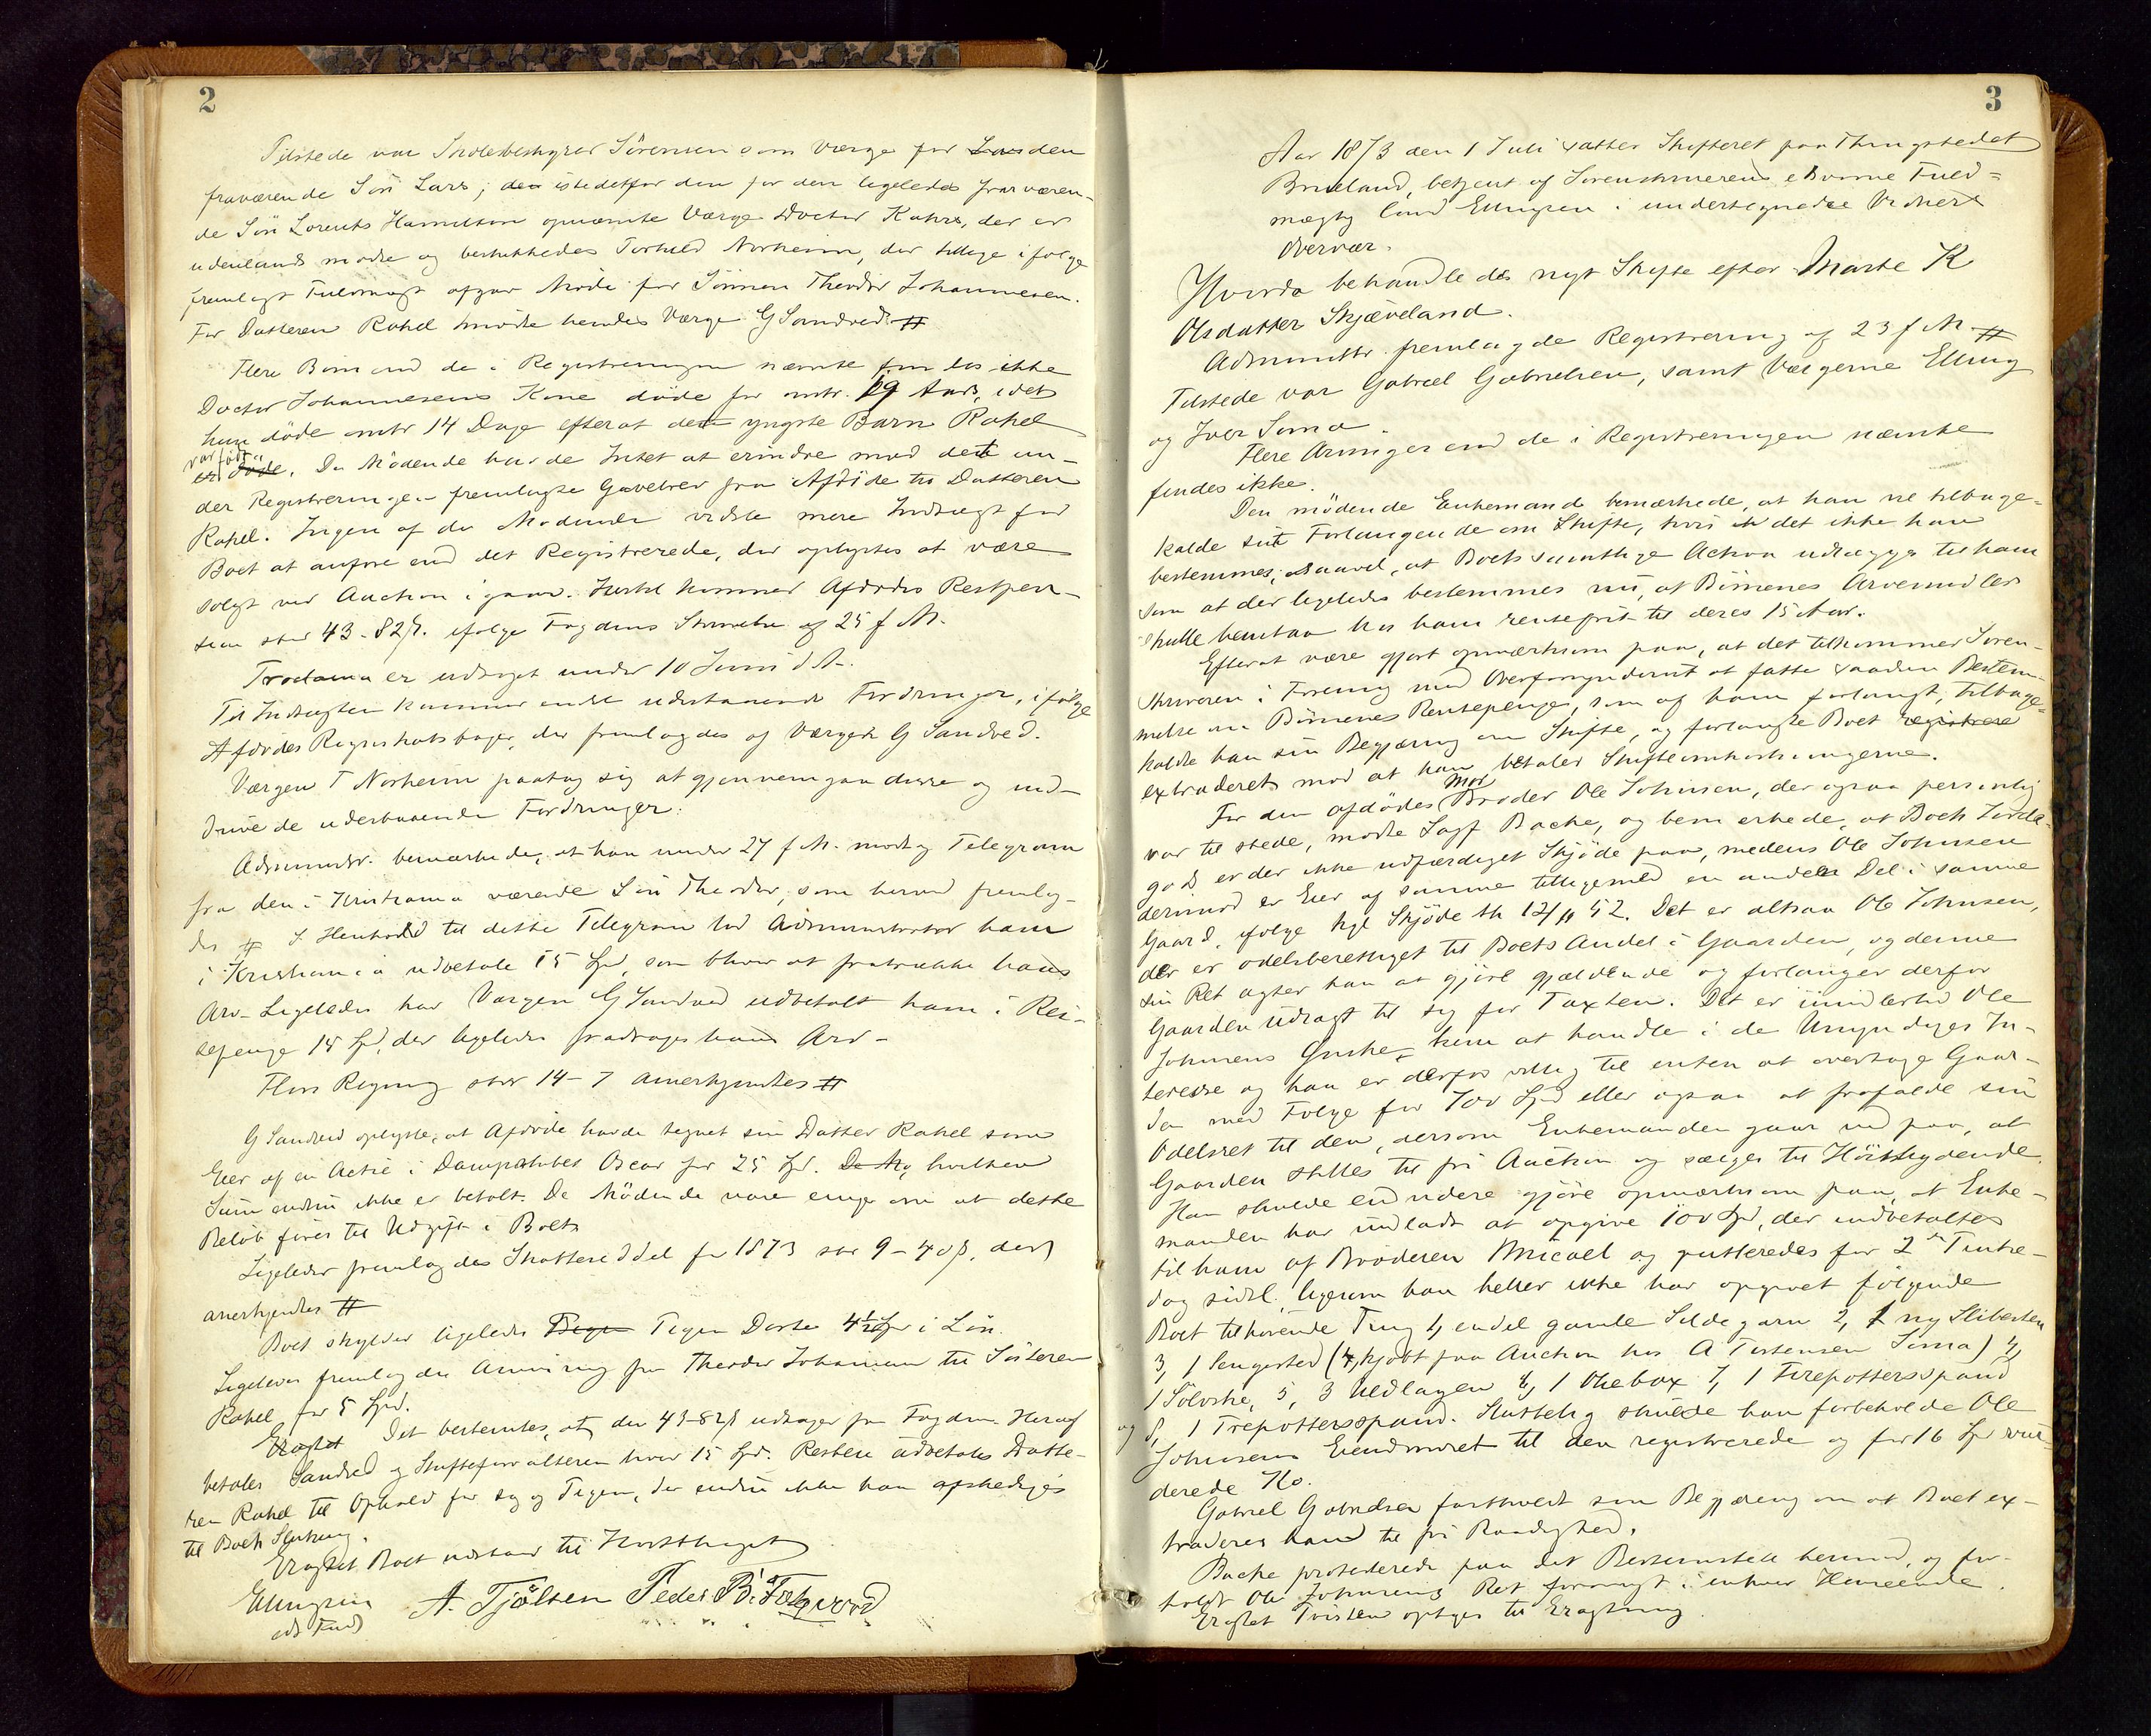 2
Tilstede var Skolebestyrer Sörensen som Værge for den
fraværende Sön Lars; den istedetfor den for den ligeledes fraværen-
de Sön Lorents Hamilton opnævnte Værge Doctor Kahrs, der er
udenlands mödte og beskikkedes Torkeld Norheim, der tillige ifölge
fremlagt Fuldmagt afgav Möde for Sönnen Theodor Johannesen.
For Datteren Rakel mödte hendes Værge G Sandved #
Flere Börn end de i Registreringen nævnte ikke
Doctor Johannesens Kone döde for omtr. 19 Aar, idet
hun döde omtr 14 Dage efterat det yngste Barn Rakel
var födt. De Mödende havde Intet at erindre mod det un-
der Registreringen fremlagte Gavebrev fra Afdöde til Datteren
Rakel. Ingen af de Mödende vidste mere Indtægt for
Boet at anföre end det Registrerede, der oplystes at være
solgt ved Auction igaar. Hertil kommer Afdödes Restpen-
sion stor 43-82 ß. ifölge Fogdens Skrivelse af 25 f M.
Proclama er udtaget under 10 Juni d A.
Til Indtægten kommer endel udestaaende Fordringer, ifölge
Afdödes Regnskabsbøger, der fremlagdes af Værgen G Sandved.
Værgen T Norheim paatog sig at gjennemgaa disse og ind-
drive de udestaaende Fordringer.
Administr. bemærkede, at han under 27 f M. modtog Telegram
fra den i Kristiania værende Sön Theodor, som herved fremlag-
des # I Henhold til dette Telegram lod Administrator ham
i Kristiania udbetale 15 Spd, som bliver at fratrække hans
Arv. Ligeledes har Værgen G Sandved udbetalt ham i Rei-
sepenge 15 Spd, der ligeledes fradrages hans Arv -
Flors Regning stor 14-7 anerkjendtes #
G Sandved oplyste, at Afdöde havde tegnet sin Datter Rakel som
Eier af en Actie i Dampskibet Oscar for 25 Spd. hvilken
Sum endnu ikke er betalt. De Mödende vare enige om at dette
Belöb föres til Udgift i Boet.
Ligeledes fremlagdes Skatteseddel for 1873 stor 9-40 ß, der
anerkjendtes #
Boet skylder ligeledes Pigen Dorte 4½ Spd i Lön.
Ligeledes fremlagdes Anvisning fra Theodor Johannesen til Söstere
Rakel for 5 Spd.
Eragtet Det bestemtes, at de 43-82 ß udtages fra Fogden. Heraf
betales Sandved og Skifteforvalteren hver 15 Spd. Resten udbetales Datte-
ren Rakel til Ophold for sig og Pigen, der endnu ikke kan afskediges
til Boets Slutning.
Eragtet Boet udstaar til
Ellingsen
edsv Fuldm
A. Tjölsen Peder B.
3
Aar 1873 den 1 Juli sattes Skifteret paa Thingstedet
Brueland, betjent af Sorenskriverens edsvorne Fuld=
mægtig Cand Ellingsen i undertegnede Vidners
Overvær.
Hvorda behandledes nyt Skifte efter Marte K
Olsdatter Skjæveland.
Administr. fremlagde Registrering af 23 f M #
Tilstede var Gabriel Gabrielsen, samt Værgerne Elling
og Iver Soma.
Flere Arvinger end de i Registreringen nævnte
findes ikke.
Den mödende Enkemand bemærkede, at han vil tilbage-
kalde sit Forlangende om Skifte, hvis det ikke kan
bestemmes saavel, at Boets samtlige Activa udlægges til ham
som at der ligeledes bestemmes nu, at Börnenes Arvemidler
skulle henstaa hos ham rentefrit til deres 15 Aar.
Efterat være gjort opmærksom paa, at det tilkommer Soren-
skriveren i Forening med Overformynderiet at fatte saadan Bestem-
melse om Börnenes Rentepenge, som af ham forlangt, tilbage-
kaldte han sin Begjæring om Skifte, og forlangte Boet registrere
extraderet mod at han betaler Skifteomkostningerne.
For den afdödes Mor Broder Ole Johnsen, der ogsaa personlig
var til stede, mödte Sagf Bache, og bemærkede, at Boets Jorde-
gods er der ikke udfærdiget Skjöde paa, medens Ole Johnsen
derimod er Eier af samme tilligemed en anden Del i samme
Gaard, ifölge tgl Skjöde th 12/11 52. Det er altsaa Ole Johnsen,
der er odelsberettiget til Boets Andel i Gaarden, og denne
sin Ret agter han at gjöre gjældende og forlanger derfor
Gaarden udlagt til sig for Taxten. Det er imidlertid Ole
Johnsens Önske kun at handle i de Umyndiges In-
teresse og han er derfor villig til enten at overtage Gaar-
den med Fölge for 700 Spd eller ogsaa at frafalde sin
Odelsret til den, dersom Enkemanden gaar ind paa, at
Gaarden stilles til fri Auction og sælges til Höistbydende.
Han skulde endvidere gjöre opmærksom paa, at Enke-
manden har undladt at opgive 100 Spd, der indbetaltes
til ham af Broderen Micael og qvitteredes for 2den Pintse-
dag sidstl. ligesom han heller ikke har opgivet fölgende
Boet tilhörende Ting 1, endel gamle Sildegarn 2, 1 ny Slibesten
3, 1 Sengested (kjöbt paa Auction hos A Torstensen Soma) 4,
1 Sölvske, 5, 3 Uldlagen 6, 1 Ölebox 7, 1 Firepottersspand
og 8, 1 Trepottersspand. Sluttelig skulde han forbeholde Ole
Johnsens Eiendomsret til den registrerede og for 16 Spd vur-
derede Ko.
Gabriel Gabrielsen fastholdt sin Begjæring om at Boet ex-
traderes ham til fri Raadighed.
Bache protesterede paa det Bestemteste hermod, og for-
holdt Ole Johnsens Ret forövrigt i enhver Henseende.
Eragtet Tvisten optages til Eragtning